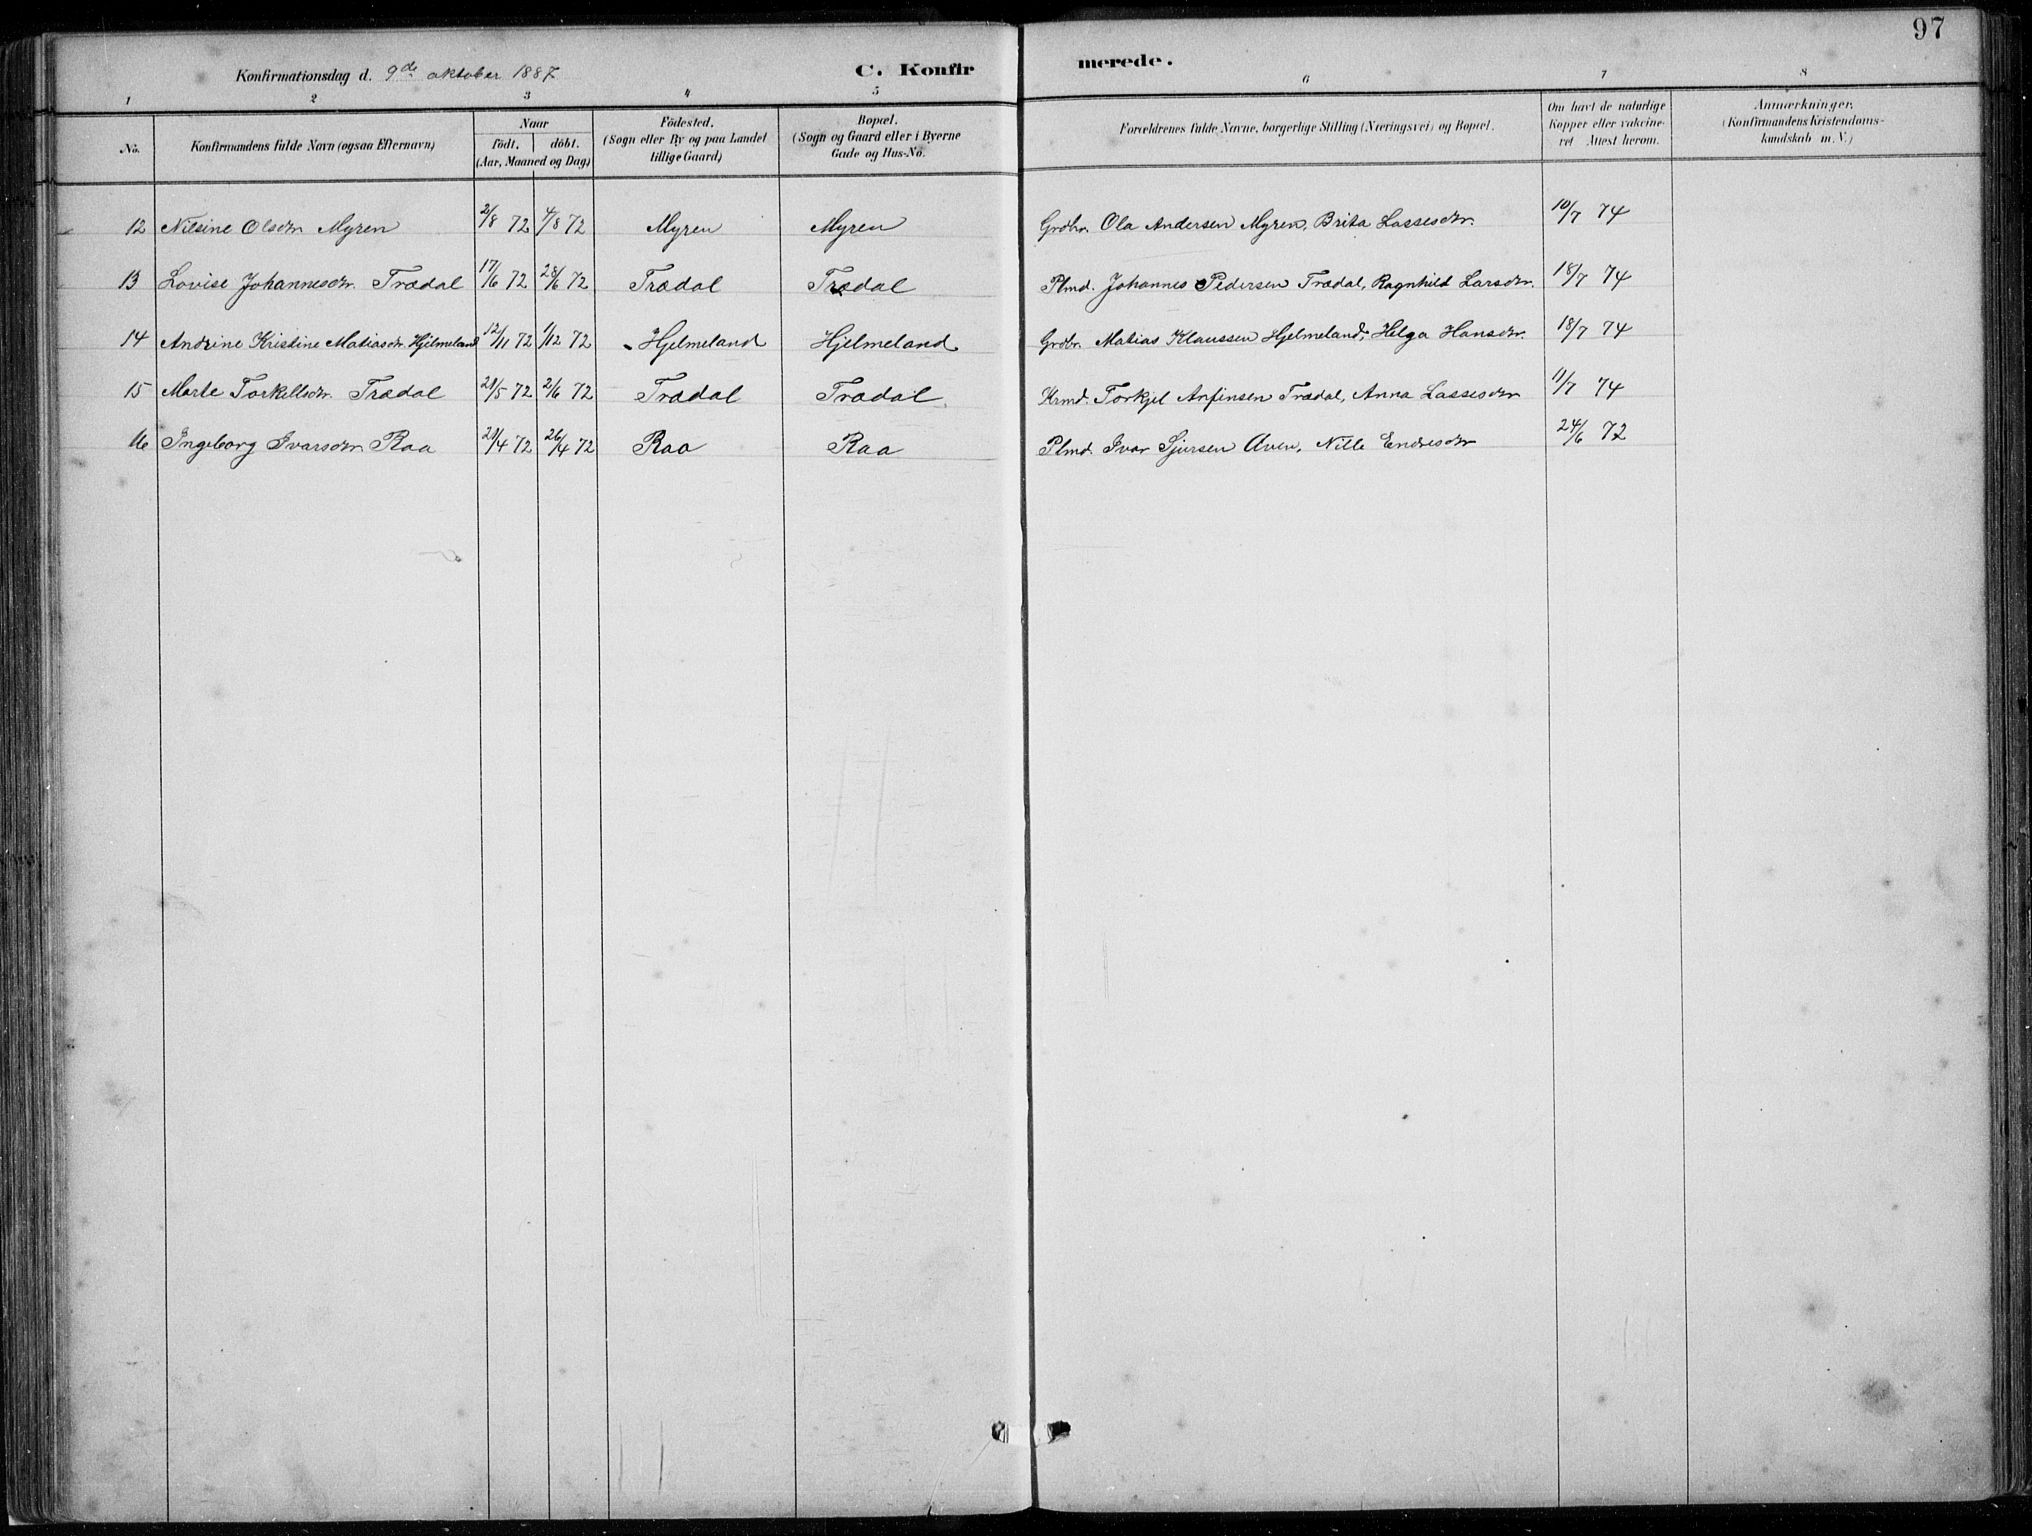 97
Konfirmationsdag d. 9de oktober 1887
C. Konfirmerede.
1 2 3 4 5 6 7 8
No. Konfirmandens fulde Navn (ogsaa Efternavn) Naar født. døbt. (Aar, Maaned og Dag) Fødested. (Sogn eller By og paa Landet tillige Gaard) Bopæl. (Sogn og Gaard eller i Byerne Gade og Hus-No. Forældrenes fulde Navne, borgerlige Stilling (Næringsvei) og Bopæl. Om havt de naturlige Kopper eller vakcineret Attest herom. Anmærkninger. (Konfirmandens Kristendomskundskab m. V.)
12 Nilsine Olsdtr Myren 2/8 72 4/8 72 Myren Myren Grdbr. Ola Andersen Myren, Brita Lassesdtr. 10/7 74
13 Lovise Johannesdtr. Trædal 17/6 72 28/6 72 Trædal Trædal Plmd. Johannes Pedersen Trædal, Ragnhild Larsdtr. 18/7 74
14 Andrine Kristine Matiasdtr. Hjelmeland 12/11 72 1/12 72 Hjelmeland Hjelmeland Grdbr. Matias Klaussen Hjelmeland, Helga Hansdtr. 18/7 74
15 Marte Torkellsdtr. Trædal 21/5 72 2/6 72 Trædal Trædal Krmd. Torkjel Anfinsen Trædal, Anna Lassesdtr 11/7 74
16 Ingeborg Ivarsdtr Raa 21/4 72 26/4 72 Raa Raa Plmd. Ivar Sjursen Aven, Nille Endresdtr 24/6 72